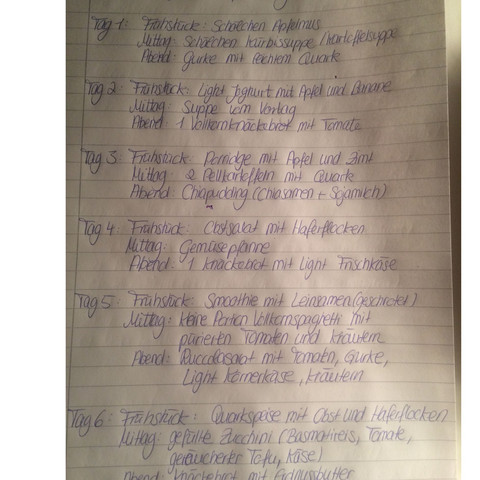 Tag 1: Frühstück: Schälchen Apfelmus
Mittag: Schälchen Kürbissuppe / Kartoffelsuppe
Abend: Gurke mit Quark
Tag 2: Frühstück: Light Joghurt mit Apfel und Banane
Mittag: Suppe vom Vortag
Abend: 1 Vollkornknäckebrot mit Tomate
Tag 3: Frühstück: Porridge mit Apfel und Zimt
Mittag: 2 Pellkartoffeln mit Quark
Abend: Chiapudding (Chiasamen + Sojamilch)
Tag 4 Frühstück: Obstsalat mit Haferflocken
Mittag: Gemüsepfanne
Abend: 1 Knäckebrot mit Light Frischkäse
Tag 5: Frühstück: Smoothie mit Leinsamen (geschrotet)
Mittag: kleine Portion Vollkornspagetti mit
pürierten Tomaten und Kräutern
Abend: Ruccolasalat mit Tomaten, Gurke,
Light Körnerkäse, Kräutern
Tag 6: Frühstück: Quarkspeise mit Obst und Haferflocken
Mittag: gefüllte Zucchini (Basmatireis, Tomate,
geräucherter Tofu, Käse)
Abend: Knäckebrot mit Erdnussbutter